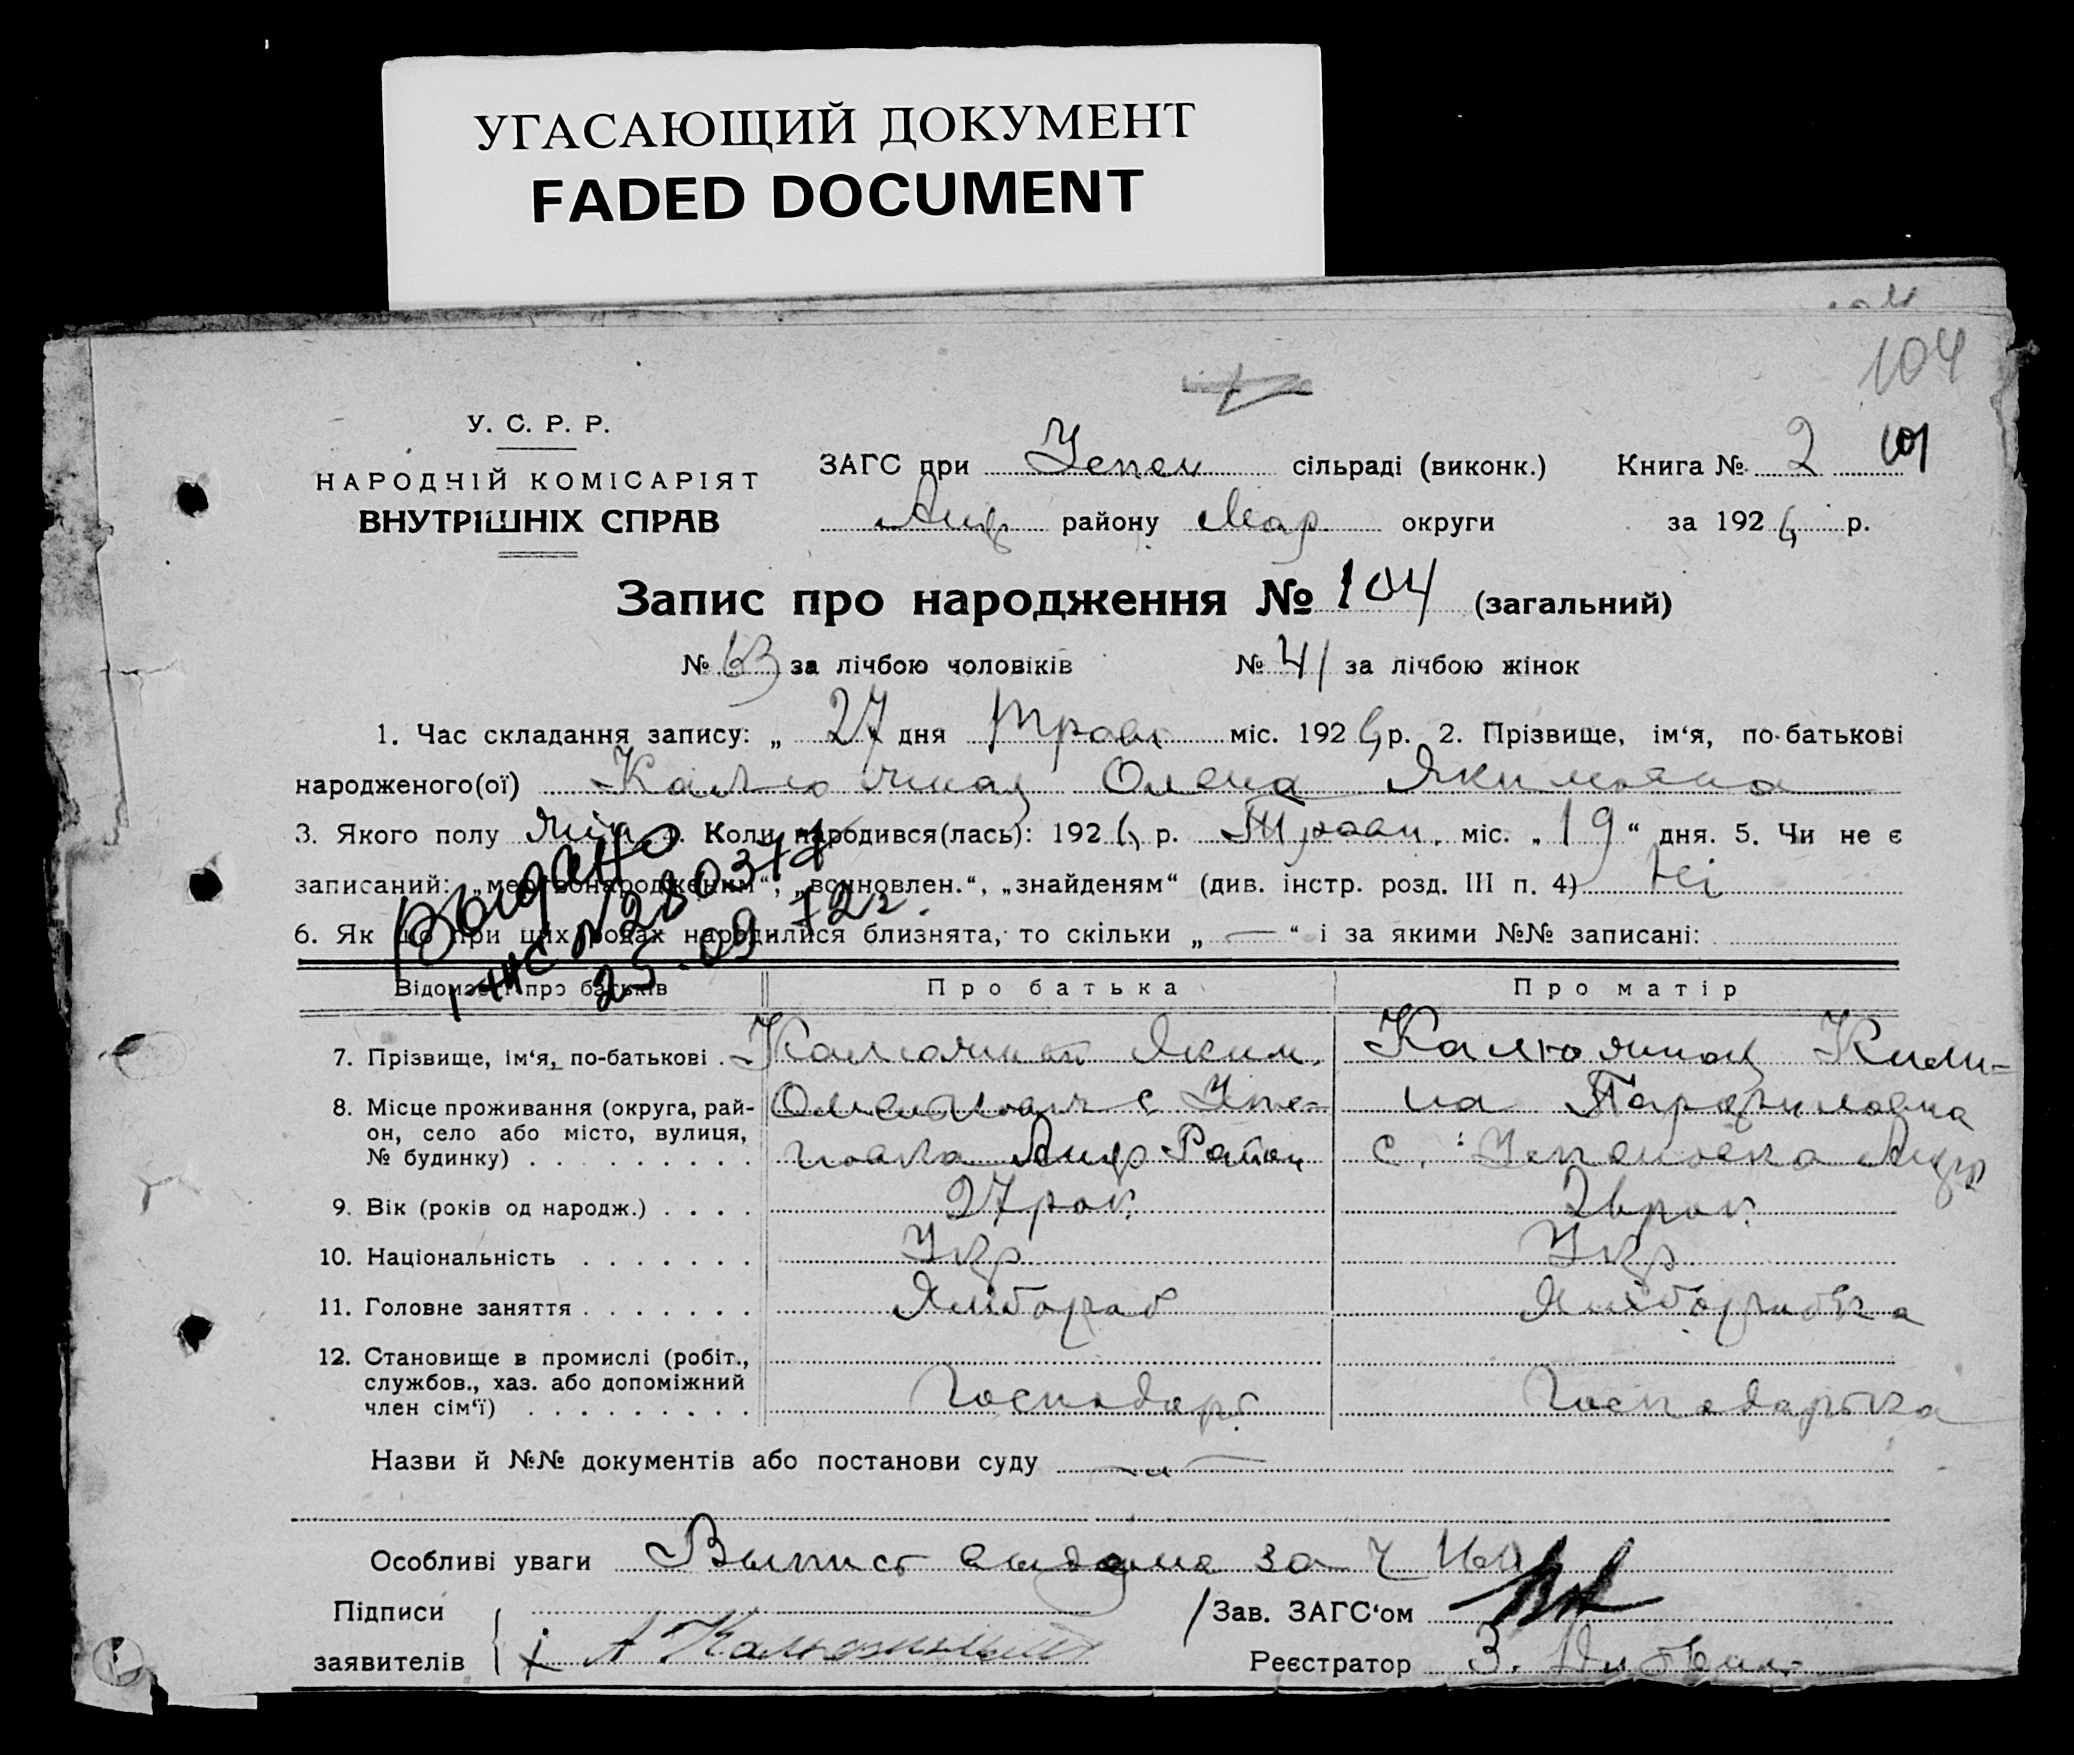 УГАСАЮЩИЙ ДОКУМЕНТ
FADED DOCUMENT
104
У. С. Р. Р.
НАРОДНІЙ КОМІСАРІЯТ
ВНУТРІШНІХ СПРАВ
ЗАГС при Успен сільраді (виконк.) Книга № 2
Анд району Мар округи за 1926 р.
Запис про народження № 104 (загальний)
№ 63 за лічбою чоловіків № 41 за лічбою жінок
1. Час складання запису: „ 27 дня Трав міс. 1926 р. 2. Прізвище, ім‘я, по-батькові
народженого(ої) Олена Якимовна
3. Якого полу жін 4. Коли народився(лась): 1926 р. Трав міс. „ 19 “ дня. 5. Чи не є
записаний: „мертвонародженим“, „вчиновлен.“, „знайденям“ (див. інстр. розд. III п. 4) Ні
6. Як що при цих родах народилися близнята, то скільки „ — “ і за якими №№ записані:
Выдано
25.09.72г.
Відомості про батьків Про батька Про матір
7. Прізвище, ім‘я, по-батькові Яким
8. Місце проживання (округа, рай-
он, село або місто, вулиця,
№ будинку) Район с. Успеновка Анд
9. Вік (років од народж.) 27 рок. 26 рок.
10. Національність Укр Укр
11. Головне заняття Хлібороб Хліборобка
12. Становище в промислі (робіт.,
службов., хаз. або допоміжний
член сім‘ї) Господарь Господарька
Назви й №№ документів або постанови суду
Особливі уваги Выпись выдана за
Підписи
заявителів
Зав. ЗАГС‘ом
Реєстратор